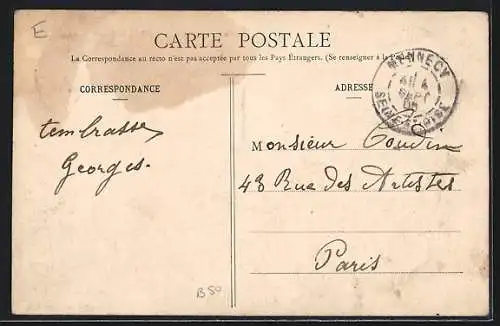 E
CARTE POSTALE
La Correspondance au recto n'est pas acceptée par tous les Pays Étrangers. (Se renseigner à la Poste)
CORRESPONDANCE
ADRESSE
MENNECY
SEPT
SEINE-ET-OISE
tembrasse
Georges.
Monsieur Coudin
48 Rue des Artistes
Paris
B50